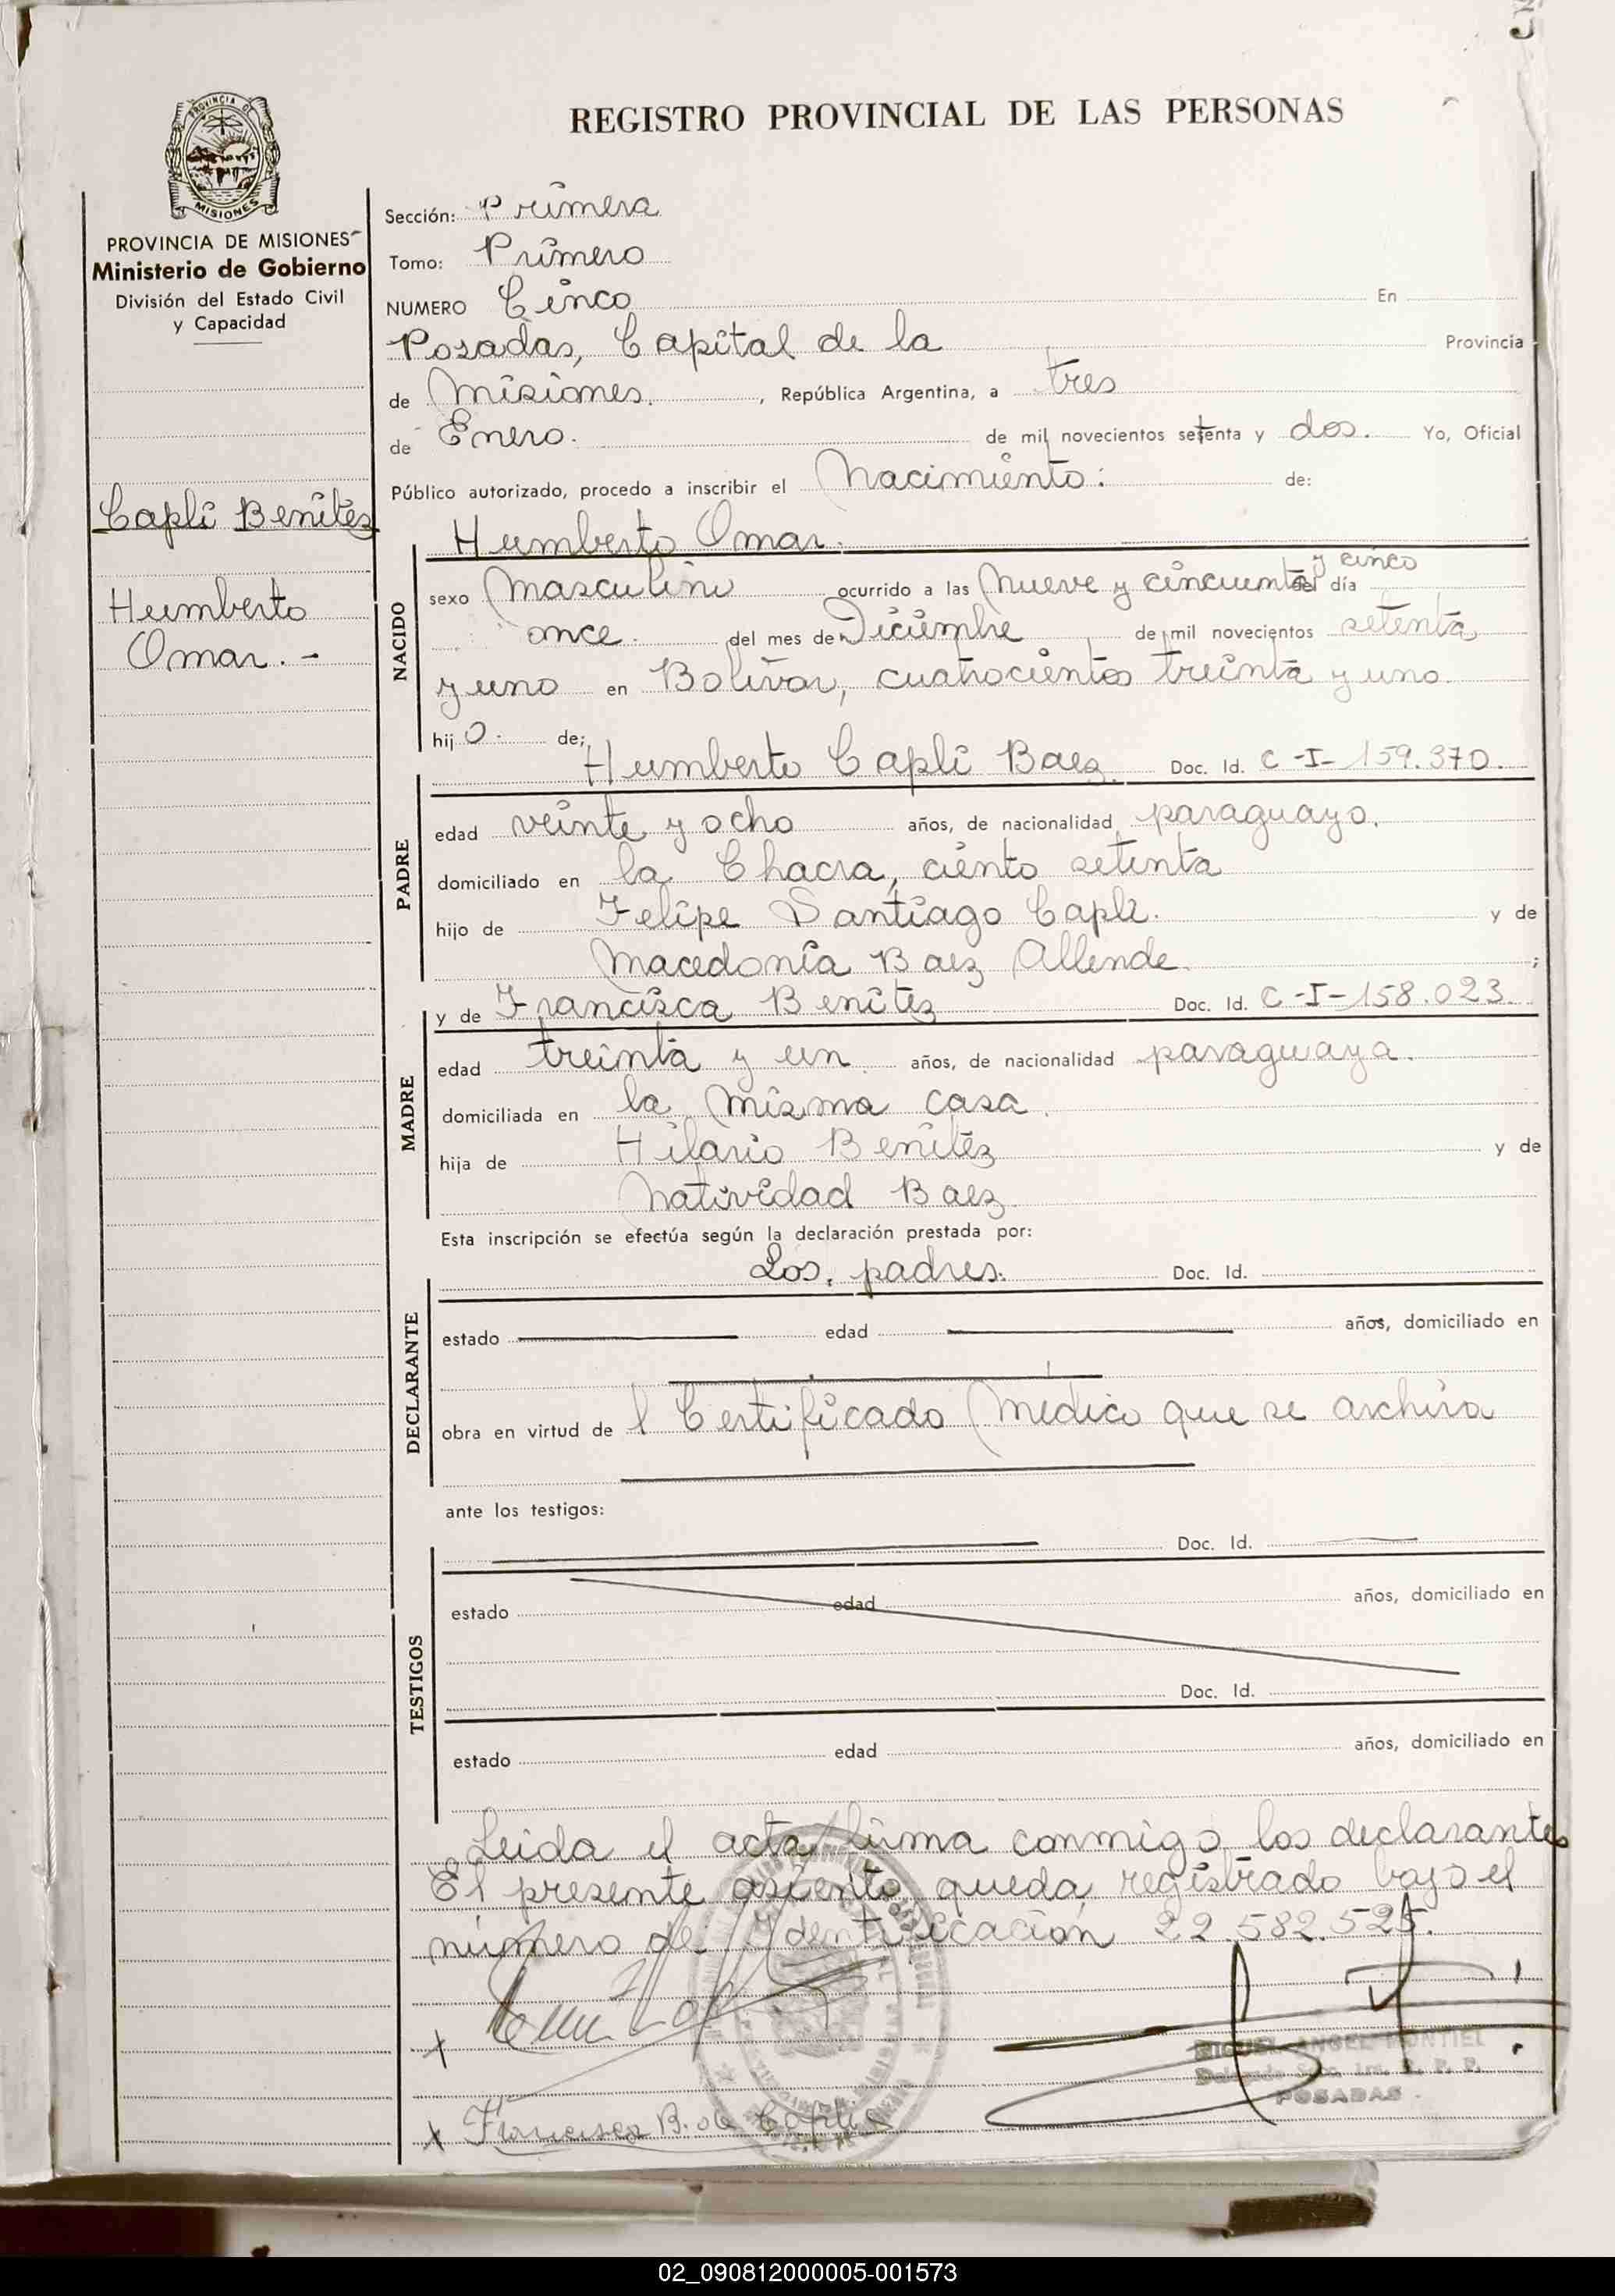 REGISTRO PROVINCIAL DE LAS PERSONAS
PROVINCIA DE MISIONES
Ministerio de Gobierno
División del Estado Civil
y Capacidad
Capli Benitez
Humberto
Omar. -
Sección: Primera
Tomo: Primero
NUMERO Cinco En
Posadas, Capital de la Provincia
de Misiones. , República Argentina, a tres
de Enero. de mil novecientos setenta y dos. Yo, Oficial
Público autorizado, procedo a inscribir el Nacimiento: de:
Humberto Omar.
NACIDO
y cinco
sexo Masculino ocurrido a las Nueve y cincuenta del día
once. del mes de Diciembre de mil novecientos setenta
y uno en Bolivar, cuatrocientos treinta y uno.
hij o. de;
Humberto Capli Baez. Doc. Id. C-I-159.370.
PADRE
edad veinte y ocho años, de nacionalidad paraguayo.
domiciliado en la Chacra, ciento setenta
hijo de Felipe Santiago Capli. y de
Macedonia Baez Allende. ;
y de Francisca Benitez Doc. Id. C-I-158.023.
MADRE
edad treinta y un años, de nacionalidad paraguaya.
domiciliada en la misma casa.
hija de Hilario Benitez y de
Natividad Baez.
Esta inscripción se efectúa según la declaración prestada por:
Los, padres. Doc. Id.
DECLARANTE
estado edad años, domiciliado en
obra en virtud de l Certificado Medico que se archiva
ante los testigos:
Doc. Id.
TESTIGOS
estado edad años, domiciliado en
Doc. Id.
estado edad años, domiciliado en
Leida el acta firma conmigo los declarantes
El presente asiento, queda registrado bajo el
número de Identificación 22.582.525.
MIGUEL ANGEL MONTIEL
POSADAS
x Francisca B. de Capli
02_090812000005-001573